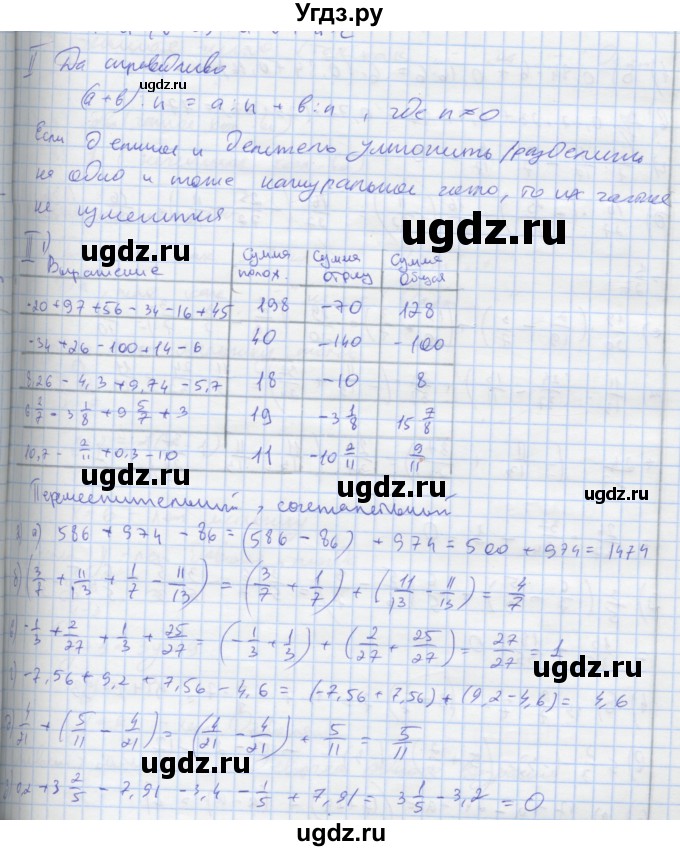 Угдз.ру
II Да справедливо
(а+в):n = a:n + в:n, где n≠0
Если делимое и делитель умножить/разделить
на одно и тоже натуральное число, то их частное
не изменится
II 1)
Выражение | Сумма полож. | Сумма отриц | Сумма общая
-20+97+56-34-16+45 | 198 | -70 | 128
-34+26-100+14-6 | 40 | -140 | -100
8,26-4,3+9,74-5,7 | 18 | -10 | 8
6 2/7 - 3 1/8 + 9 5/7 + 3 | 19 | -3 1/8 | 15 7/8
10,7 - 2/11 + 0,3 - 10 | 11 | -10 2/11 | 9/11
Переместительный, сочетательный
а) 586 + 974 - 86 = (586 - 86) + 974 = 500 + 974 = 1474
б) (3/7 + 11/13 + 1/7 - 11/13) = (3/7 + 1/7) + (11/13 - 11/13) = 4/7
в) -1/3 + 2/27 + 1/3 + 25/27 = (-1/3 + 1/3) + (2/27 + 25/27) = 27/27 = 1
г) -7,56 + 9,2 + 7,56 - 4,6 = (-7,56 + 7,56) + (9,2 - 4,6) = 4,6
д) 4/21 + (5/11 - 4/21) = (4/21 - 4/21) + 5/11 = 5/11
0,2 + 3 2/5 - 7,91 - 3,4 - 1/5 + 7,91 = 3 1/5 - 3,2 = 0
ugdz.ru
ugdz.ru
ugdz.ru
ugdz.ru
ugdz.ru
ugdz.ru
ugdz.ru
ugdz.ru
ugdz.ru
ugdz.ru
ugdz.ru
ugdz.ru